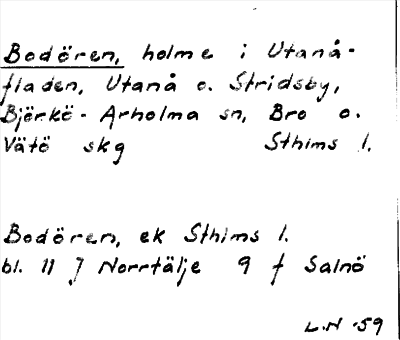 Bodören, holme i Utanå-
fladen, Utanå o. Stridsby,
Björkö-Arholma sn, Bro o.
Vätö skg Sthlms l.
Bodören, ek Sthlms l.
bl. 11 J Norrtälje 9 f Salnö
L.N -59